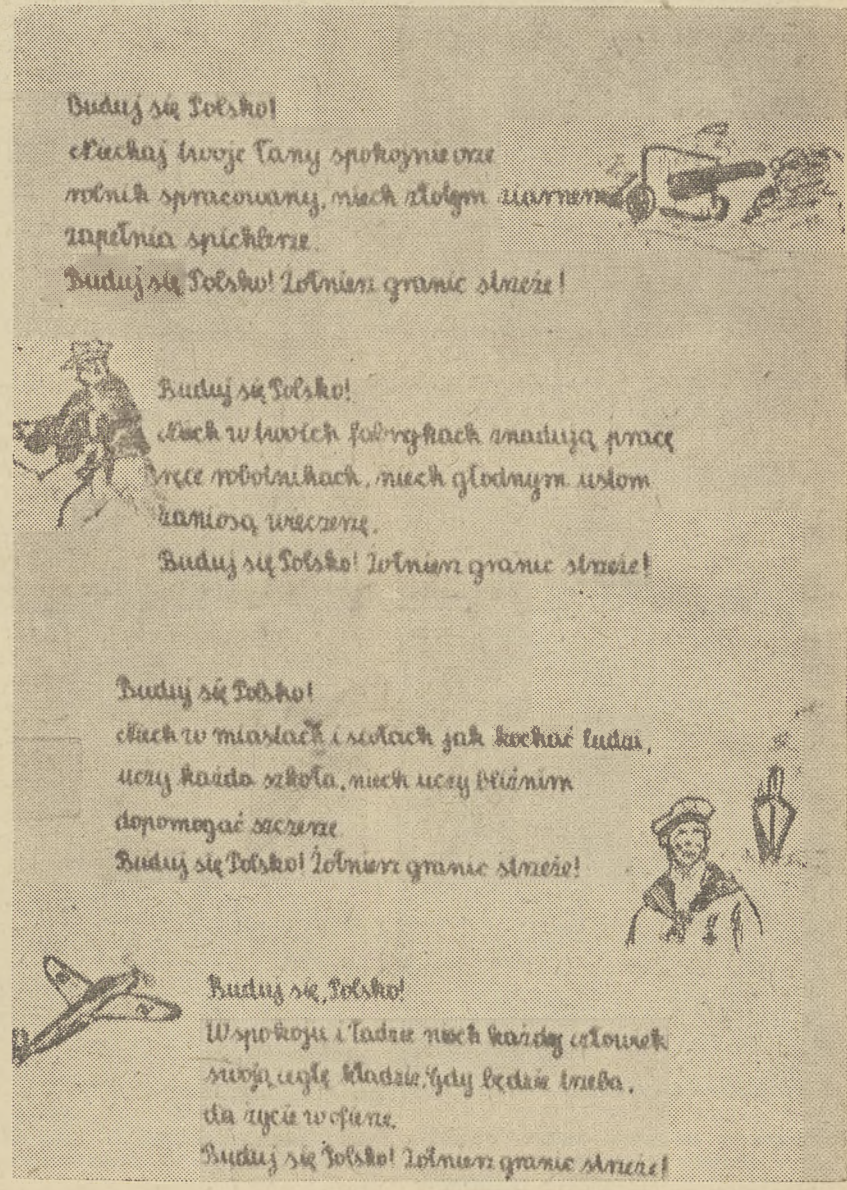 Buduj się Polsko!
Niechaj twoje łany spokojnie orze
rolnik spracowany, niech złotym ziarnem
zapełnia spichlerze.
Buduj się Polsko! Żołnierz granic strzeże!
Buduj się Polsko!
Niech w twoich fabrykach znadują pracę
ręce robotnikach, niech głodnym ustom
zaniosą wieczerzę.
Buduj się Polsko! Żołnierz granic strzeże!
Buduj się Polsko!
Niech w miastach i siołach jak kochać ludzi,
uczy każda szkoła, niech uczy bliźnim
dopomogać szczerze
Buduj się Polsko! Żołnierz granic strzeże!
Buduj się, Polsko!
W spokoju i ładzie niech każdy człowiek
swoją cegłę kładzie, Gdy będzie trzeba,
da życie w ofierze.
Buduj się Polsko! Żołnierz granic strzeże!